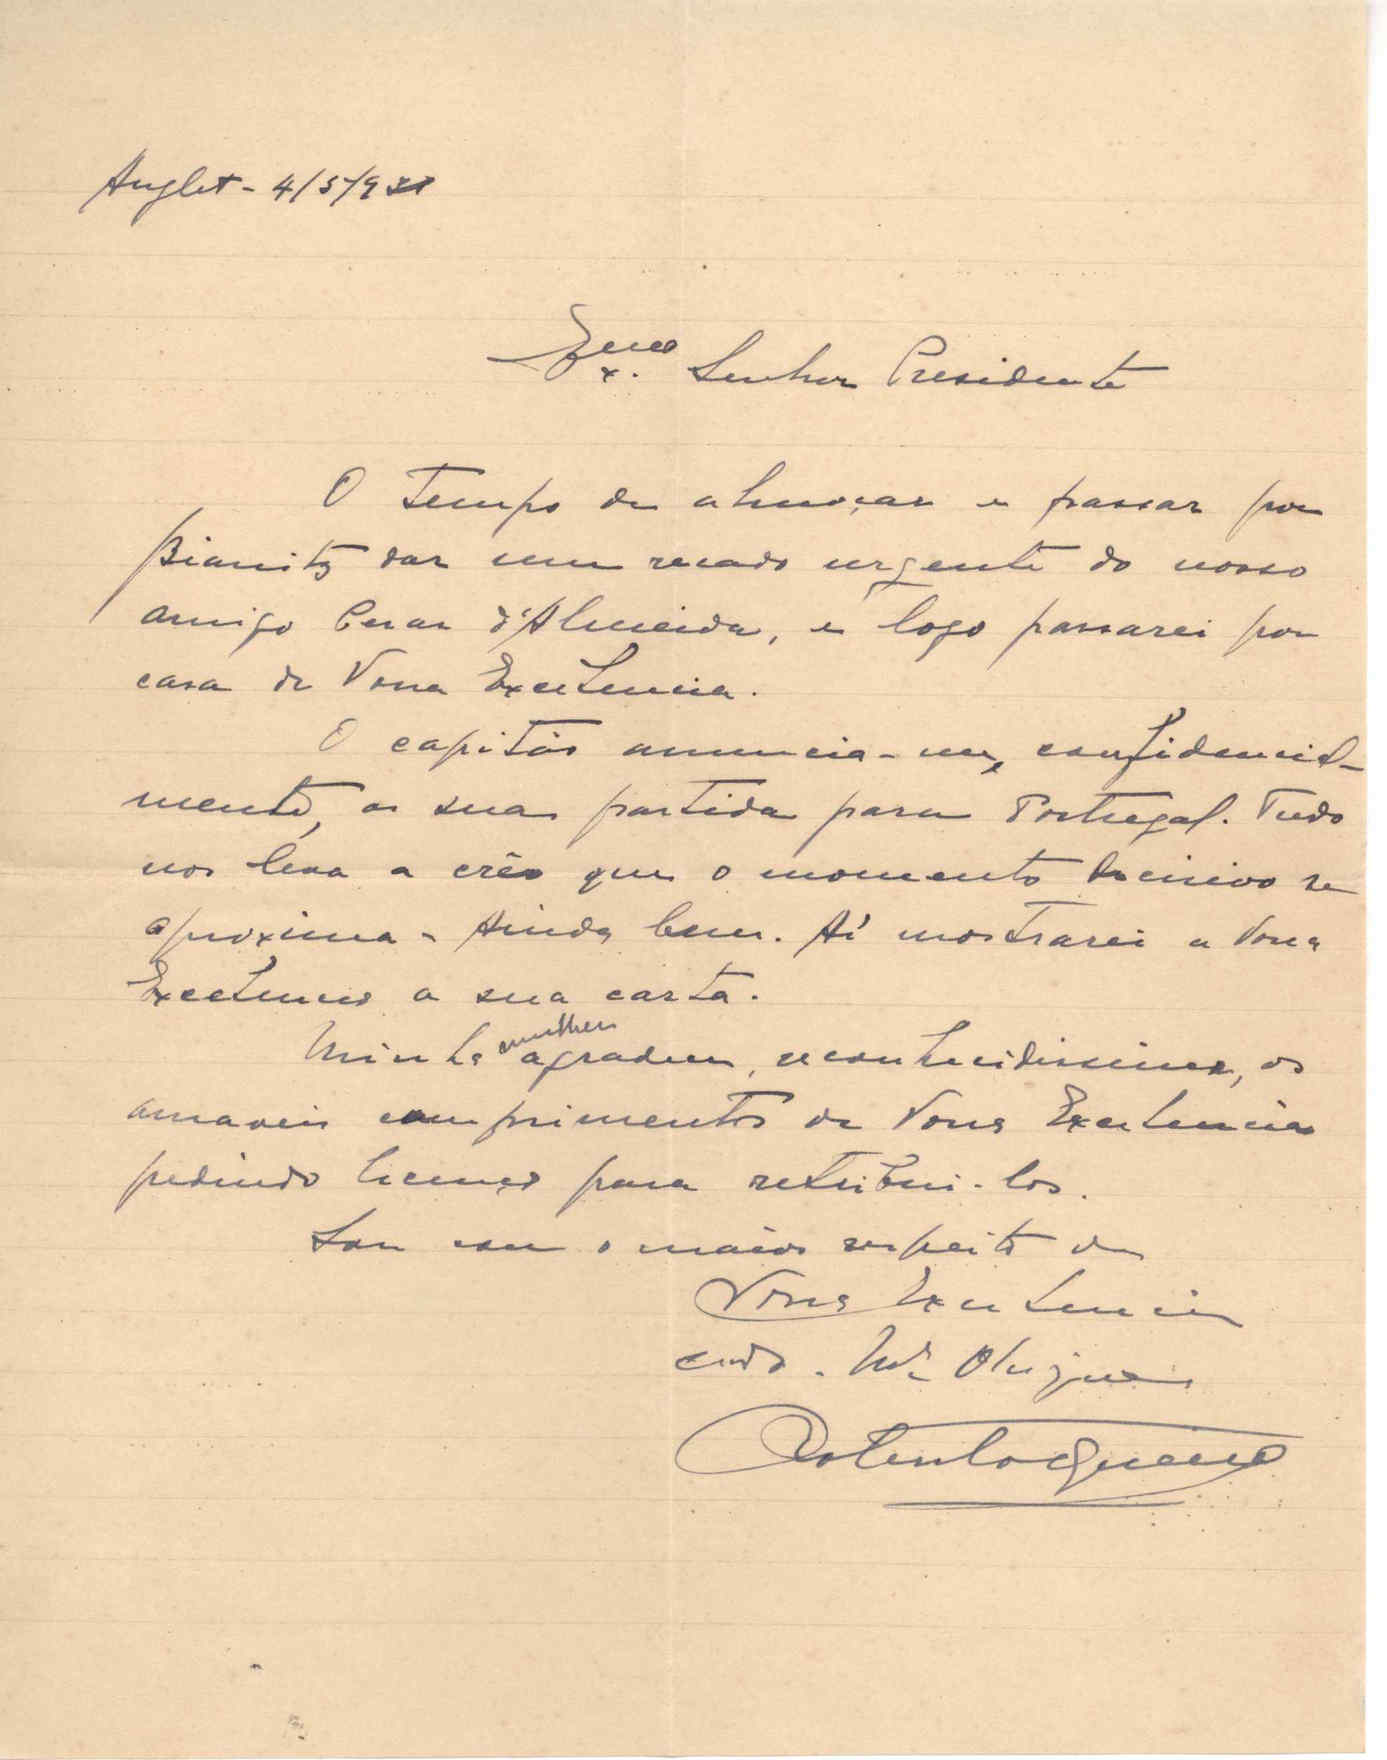 Anglet - 4/5/931
Exmo. Senhor Presidente
O tempo de almoçar e passar por
Biarritz dar um recado urgente do nosso
amigo Cesar d'Almeida, e logo passarei por
casa de Vossa Excelencia.
O capitão anuncia-me, confidencial-
mente, a sua partida para Portugal. Tudo
nos leva a crêr que o momento decisivo se
aproxima - Ainda bem. Aí mostrarei a Vossa
Excelencia a sua carta.
Minha mulher agradece, reconhecidissima, os
amaveis comprimentos de Vossa Excelencia
pedindo licença para retribui-los.
Sou com o maior respeito de
Vossa Excelencia